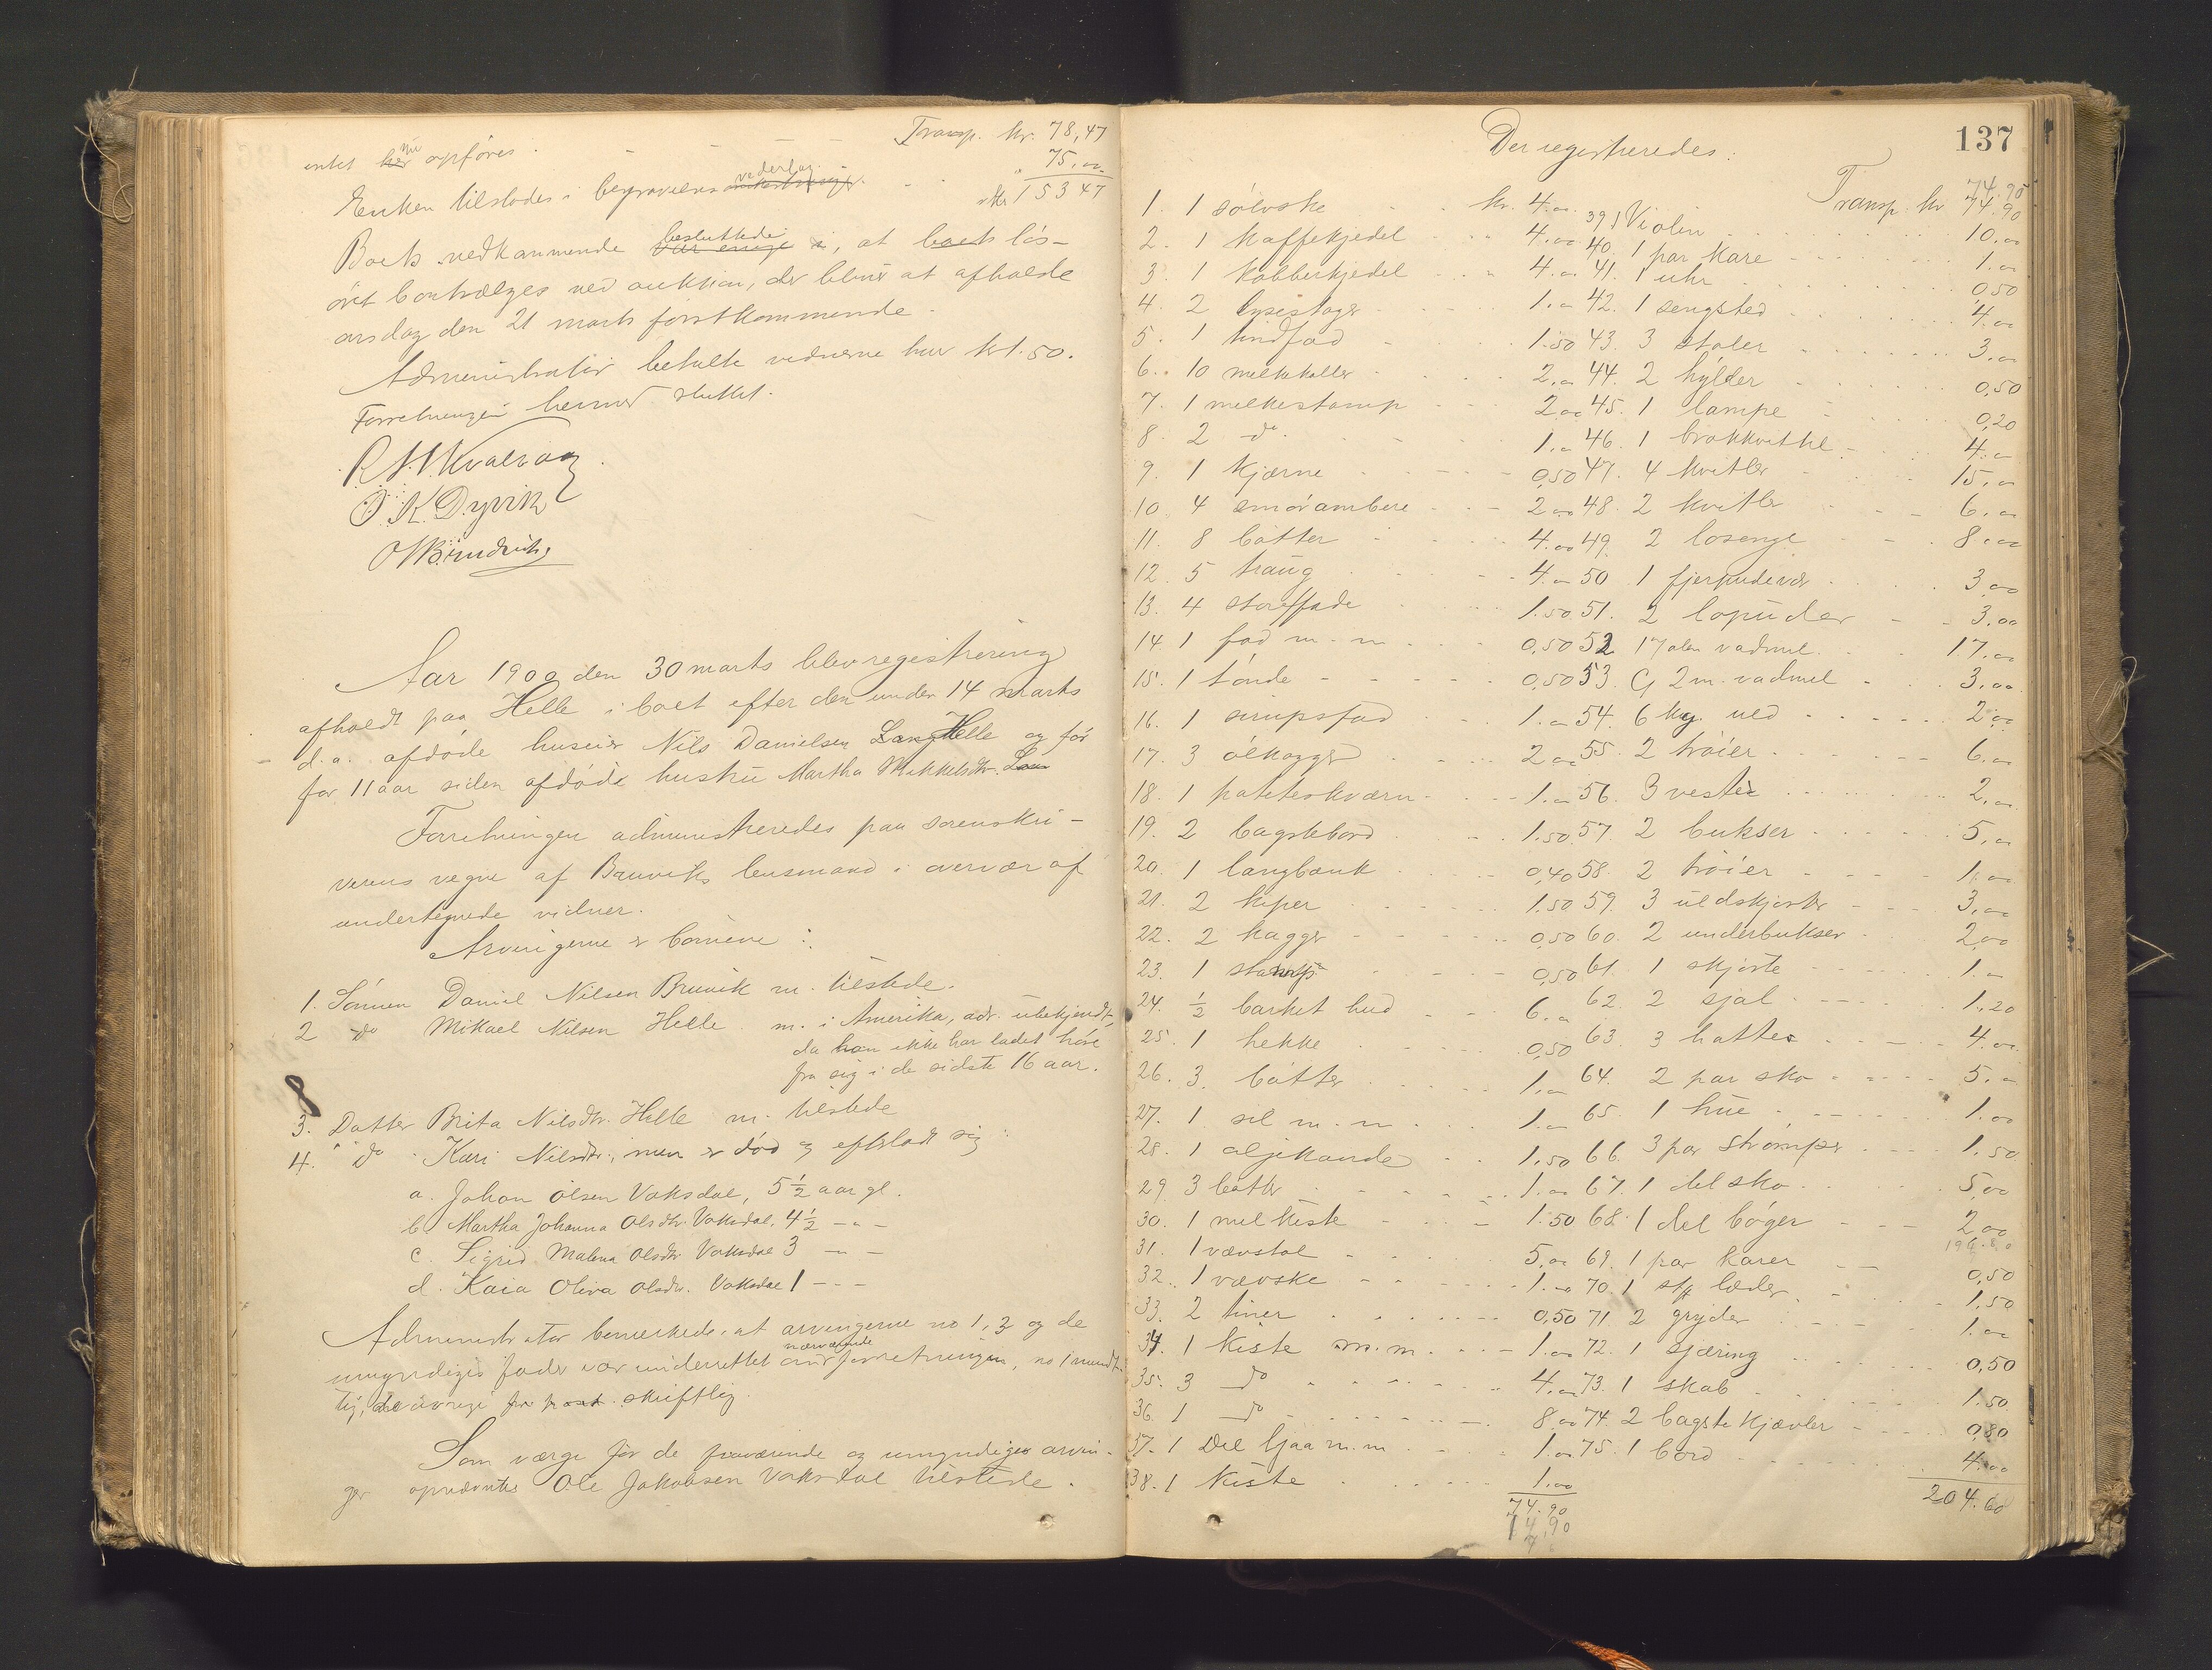 Transp. kr. 78,47
enkt her nu opføres. 75.00
Enken tilstodes i begravelses vederlag
" 153 47
Boets vedkommende besluttede, at boets løs-
øret bortsælges ved auktion, der bliver at afholde
onsdag den 21 marts førstkommende.
Administrator betalte vidnerne hver kr 1.50.
Forretningen hermed sluttet.
O. K. Dyvik
Aar 1900 den 30 marts blev registrering
afholdt paa Helle i boet efter den under 14 marts
d.a. afdøde huseier Nils Danielsen Lang Helle og før
for 11 aar siden afdøde hustru Martha Mikkelsdtr.
Forretningen administreredes paa sorenskri-
verens vegne af Bruviks lensmand i overvær af
undertegnede vidner.
Arvingerne er børnene:
1. Sønnen Daniel Nilsen Bruvik m. tilstede.
2 do Mikael Nilsen Helle m. i Amerika, adr. ubekjendt,
da han ikke har ladet høre
fra sig i de sidste 16 aar.
8
3. Datter Brita Nilsdtr. Helle m. tilstede
4. " do Kari Nilsdtr., men er død og efterladt sig:
a. Johan Olsen Vaksdal, 5½ aar gl.
b. Martha Johanna Olsdtr. Vaksdal, 4½ - " -
c. Sigrid Malena Olsdtr Vaksdal 3 - " -
d. Kaia Oliva Olsdtr. Vaksdal 1 - - -
Administrator bemerkede, at arvingerne no 1, 3 og de
umyndiges fader var underrettet om nærværende forretningen, no 1 mundt-
lig, de øvrige pr post skriftlig.
Som værge for de fraværende og umyndige arvin-
ger opnævntes Ole Jakobsen Vaksdal tilstede.
137
Der registreredes:
1. 1 sølvske kr. 4.00
2. 1 kaffekjedel 4.00
3 1 kobberkjedel 4.00
4. 2 lysestager 1.00
5. 1 tindfad 1.50
6. 10 melkekoller 2.00
7. 1 melkestamp 2.00
8. 2 do 1.00
9. 1 kjærne 0,50
10. 4 smørambere 2.00
11. 8 bøtter 4.00
12. 5 traug 4.00
13. 4 storefade 1.50
14. 1 fad m.m. 0,50
15. 1 tønde 0,50
16. 1 sirupsfad 1.00
17. 3 ølkagger 2.00
18. 1 poteteskværn 1.00
19. 2 bagstebord 1.50
20. 1 langbænk 0,40
21. 2 kiper 1.50
22. 2 kagger 0,50
23. 1 stamp 0,50
24. ½ barket hud 6.00
25. 1 hekke 0,50
26. 3 bøtter 1.00
27. 1 sil m.m 1.00
28. 1 oljekande 1,50
29. 3 bøtter 1.00
30. 1 melkiste 1.50
31. 1 vævstol 5,00
32. 1 vævske 1.00
33. 2 tiner 0,50
34. 1 kiste m.m. 1.00
35. 3 do 4.00
36. 1 do 8.00
37. 1 del ljaa m.m 1.00
38. 1 kiste 1.00
74.90
74,90
Transp. kr 74.90
74.90
39 1 Violin 10.00
40. 1 par kare 1.00
41. 1 uhr 0,50
42. 1 sengsted 4.00
43. 3 stoler 3.00
44. 2 hylder 0,50
45. 1 lampe 0,20
46. 1 brokkvittel 4.00
47. 4 kvitler 15.00
48. 2 kvitler 6.00
49. 2 losenge 8.00
50 1 fjerpudevar 3.00
51. 2 lopuder 3.00
52 17 alen vadmel 17.00
53. 2 m. vadmel 3.00
54. 6 kg. uld 2.00
55. 2 trøier 6.00
56. 3 veste 2.00
57. 2 bukser 5.00
58. 2 trøier 1.00
59. 3 uldskjorter 3.00
60. 2 underbukser 2.00
61. 1 skjorte 1.00
62. 2 sjal 1.20
63. 3 hatter 4.00
64. 2 par sko 5.00
65. 1 hue 1.00
66. 3 par strømper 1.50
67. 1 del sko 5,00
68. 1 del bøger 2,00
196.80
69. 1 par karer 0,50
70. 1 stk læder 1,50
71. 2 gryder 1.00
72. 1 sjæring 0,50
73. 1 skab 1.50
74. 2 bagstekjævler 0,80
75. 1 bord 4.00
204.60